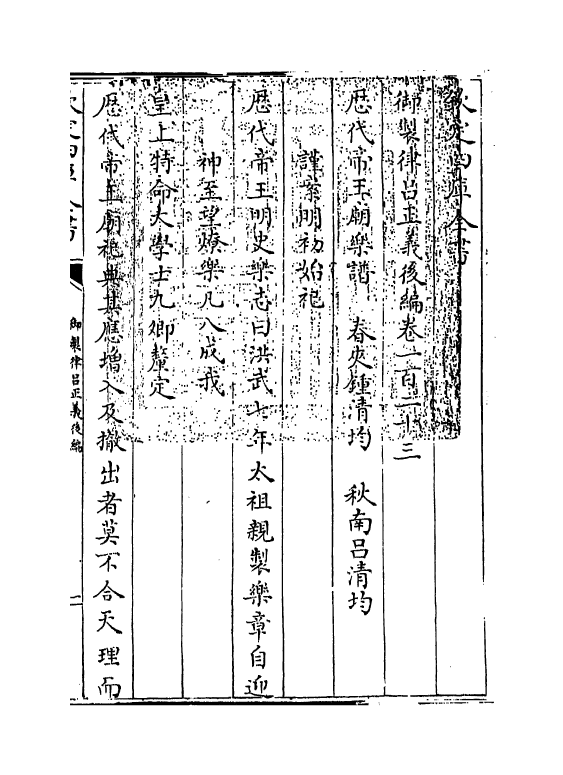 欽定四庫全書
御製律吕正義後編卷一百二十三
歷代帝王廟樂譜 春夾鍾清均 秋南吕清均
謹案明初始祀
歷代帝王明史樂志曰洪武七年太祖親製樂章自迎
神至望燎樂凡八成我
皇上特命大學士九卿釐定
歷代帝王廟祀典其應增入及撤出者莫不合天理而
欽定四庫全書
御製律吕正義後編
一